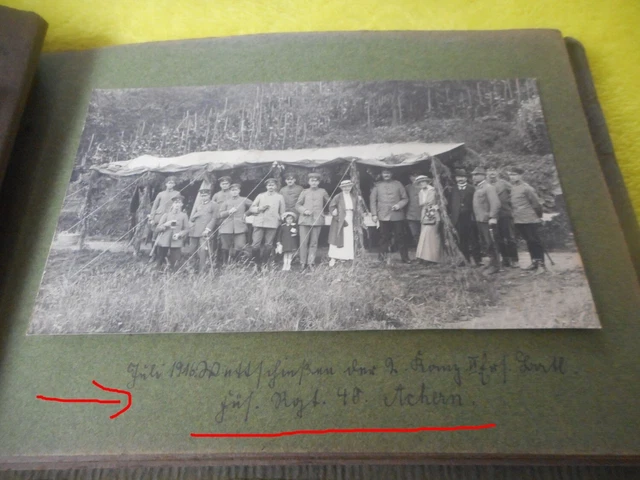 Juli 1916. Wettschießen der 2. Komp. II Ers. Batl.
Füs. Rgt. 40. Achern.